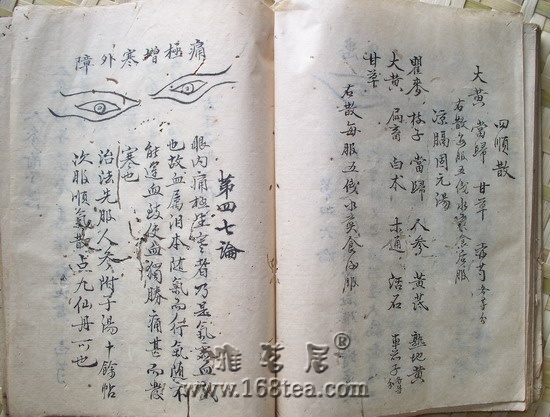 四順散
大黄 當歸 甘草 赤芍 各等分
右散每服五伐水煎食后服
涼膈周元湯
瞿麥 枝子 當歸 人参 黄芪 熟地黄
大黄 扁畜 白术 木通 活石 車前子
甘草
右散每服五伐水煎食后服
痛極增寒外障
第四七論
眼内痛極生寒者乃是氣寒血
也故血属泪本随氣而行氣随不
能運血致使血獨勝痛甚而發
寒也
治法先服人参附子湯十餘帖
次服順氣散点九仙丹可也
雅茗居®
www.168tea.com